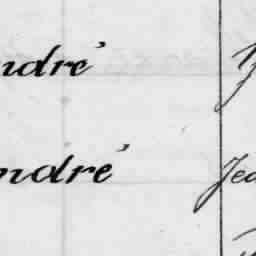 ndré
ndré Jea